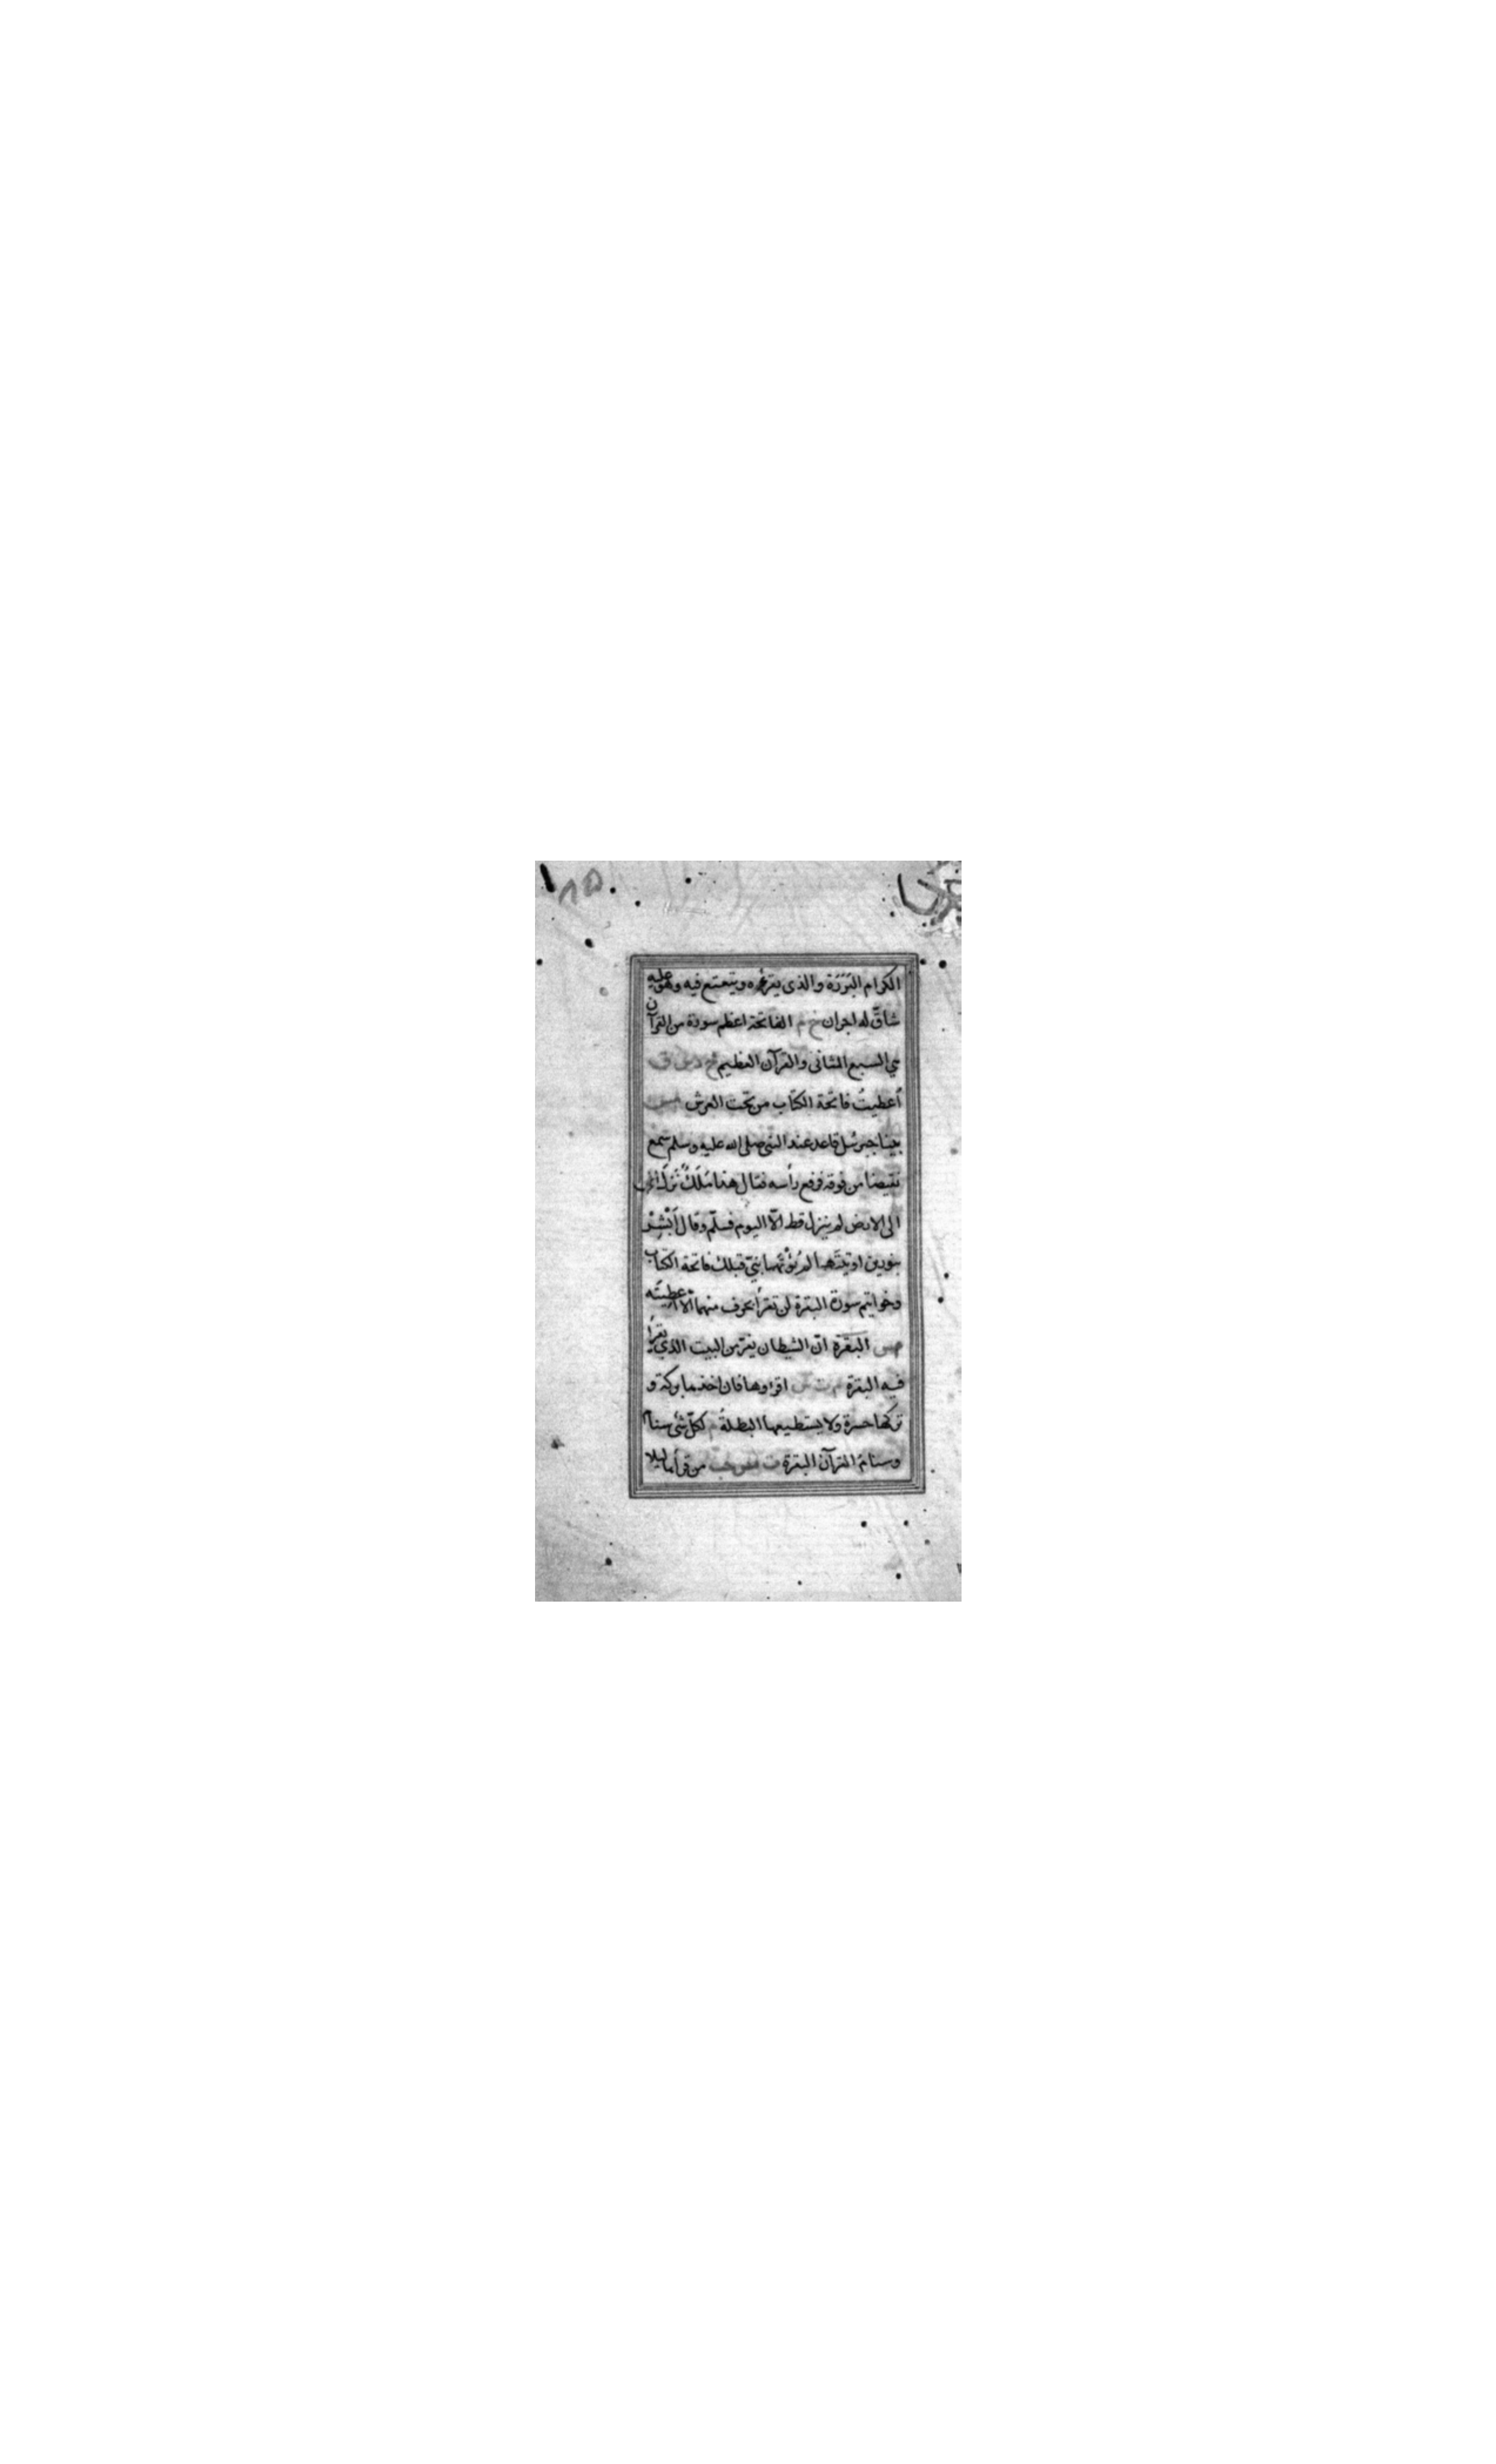 ٨٥
الكرام البَرَرَة والذى يقرؤه ويتعتع فيه وهو عليه
شاقّ له اجران خ م الفاتحة اعظم سورة من القرآن
هي السبع المثانى والقرآن العظيم خ د س ق
أعطيتُ فاتحة الكتاب من تحت العرش مس
بينا جبرئيل قاعد عند النبى صلى الله عليه وسلم سمع
نقيضا من فوقه فرفع رأسه فقال هذا مَلَكٌ نَزَلَ
الى الارض لم ينزل قط الّا اليوم فسلّم وقال أَبْشِرْ
بنورين اوتيتَهما لم يُؤْتَهما نبىّ قبلك فاتحة الكتاب
وخواتيم سورة البقرة لن تقرأ بحرف منهما الّا اعطيتَه
م س البقرة انّ الشيطان يفرّ من البيت الذي يقرأ
فيه البقرة م ت س اقرأوها فان اخذها بركة و
تركها حسرة ولا يستطيعها البطلةُ م لكلّ شئ سنام
وسنام القرآن البقرة ت مس حب من قرأها ليلا